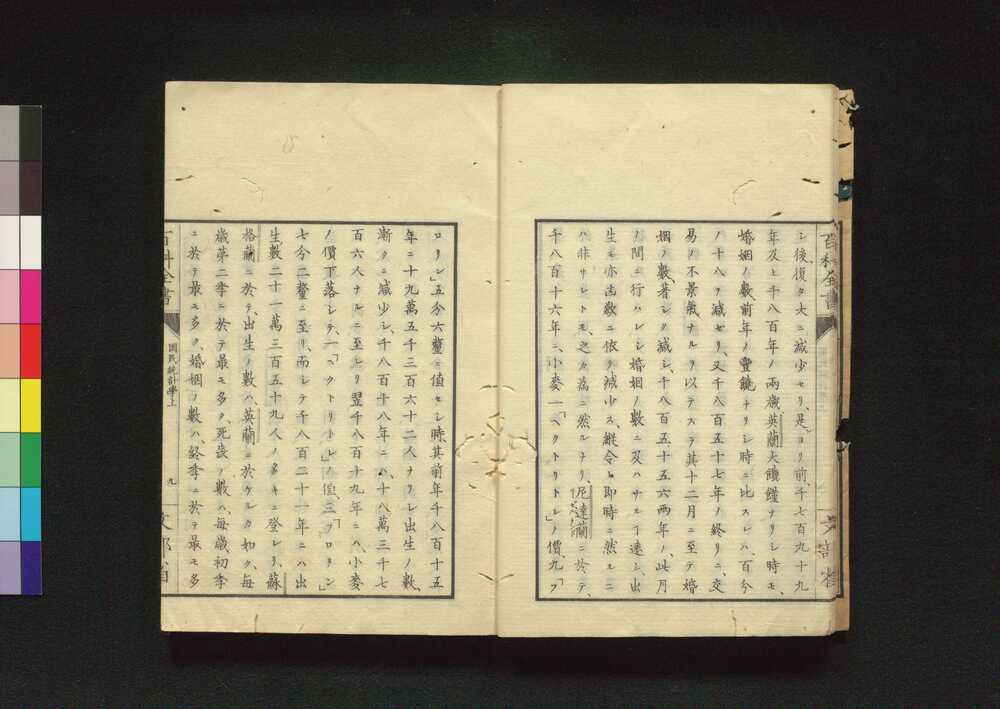 百科全書
シ後復タ大ニ減少セリ、是ヨリ前、千七百九十九
年及ヒ千八百年ノ兩歲英蘭大饑饉ナリシ時モ、
婚姻ノ數前年ノ豐饒ナリシ時ニ比スレハ、百分
ノ十八ヲ減セリ、又千八百五十七年ノ終リニ、交
易ノ不景氣ナルヲ以テスラ其十二月ニ至テ婚
姻ノ數、著シク減シ、千八百五十五六兩年ノ、此月
ノ間ニ行ハレシ婚姻ノ數ニ及ハサルヿ遠シ、出
生モ亦凶歉ニ依テ減少ス、縱令ヒ卽時ニ然ルニ
ハ非サレトモ、之カ爲ニ然ルナリ、尼達蘭ニ於テ、
千八百十六年ニ、小麥一「ヘクトリトレ」ノ價、九「フ
ロリン」五分六釐ニ値セシ時、其前年千八百十五
年ニ十九萬五千三百六十二人ナリシ出生ノ數、
漸クニ減少シ、千八百十八年ニハ、十八萬三千七
百六人ナルニ至レリ翌千八百十九年ニハ、小麥
ノ價下落シテ、一「ヘクトリトレ」ノ價、三「フロリン」
七分二釐ニ至リ、而シテ千八百二十一年ニハ出
生數二十一萬三百五十九人ノ多キニ登レリ、蘇
格蘭ニ於テ、出生ノ數ハ、英蘭ニ於ケルカ如ク、每
歲第二季ニ於テ最モ多ク、死喪ノ數ハ、每歲初季
ニ於テ最モ多ク、婚姻ノ數ハ、終季ニ於テ最モ多
百科全書
國民統計學上
九
文部省